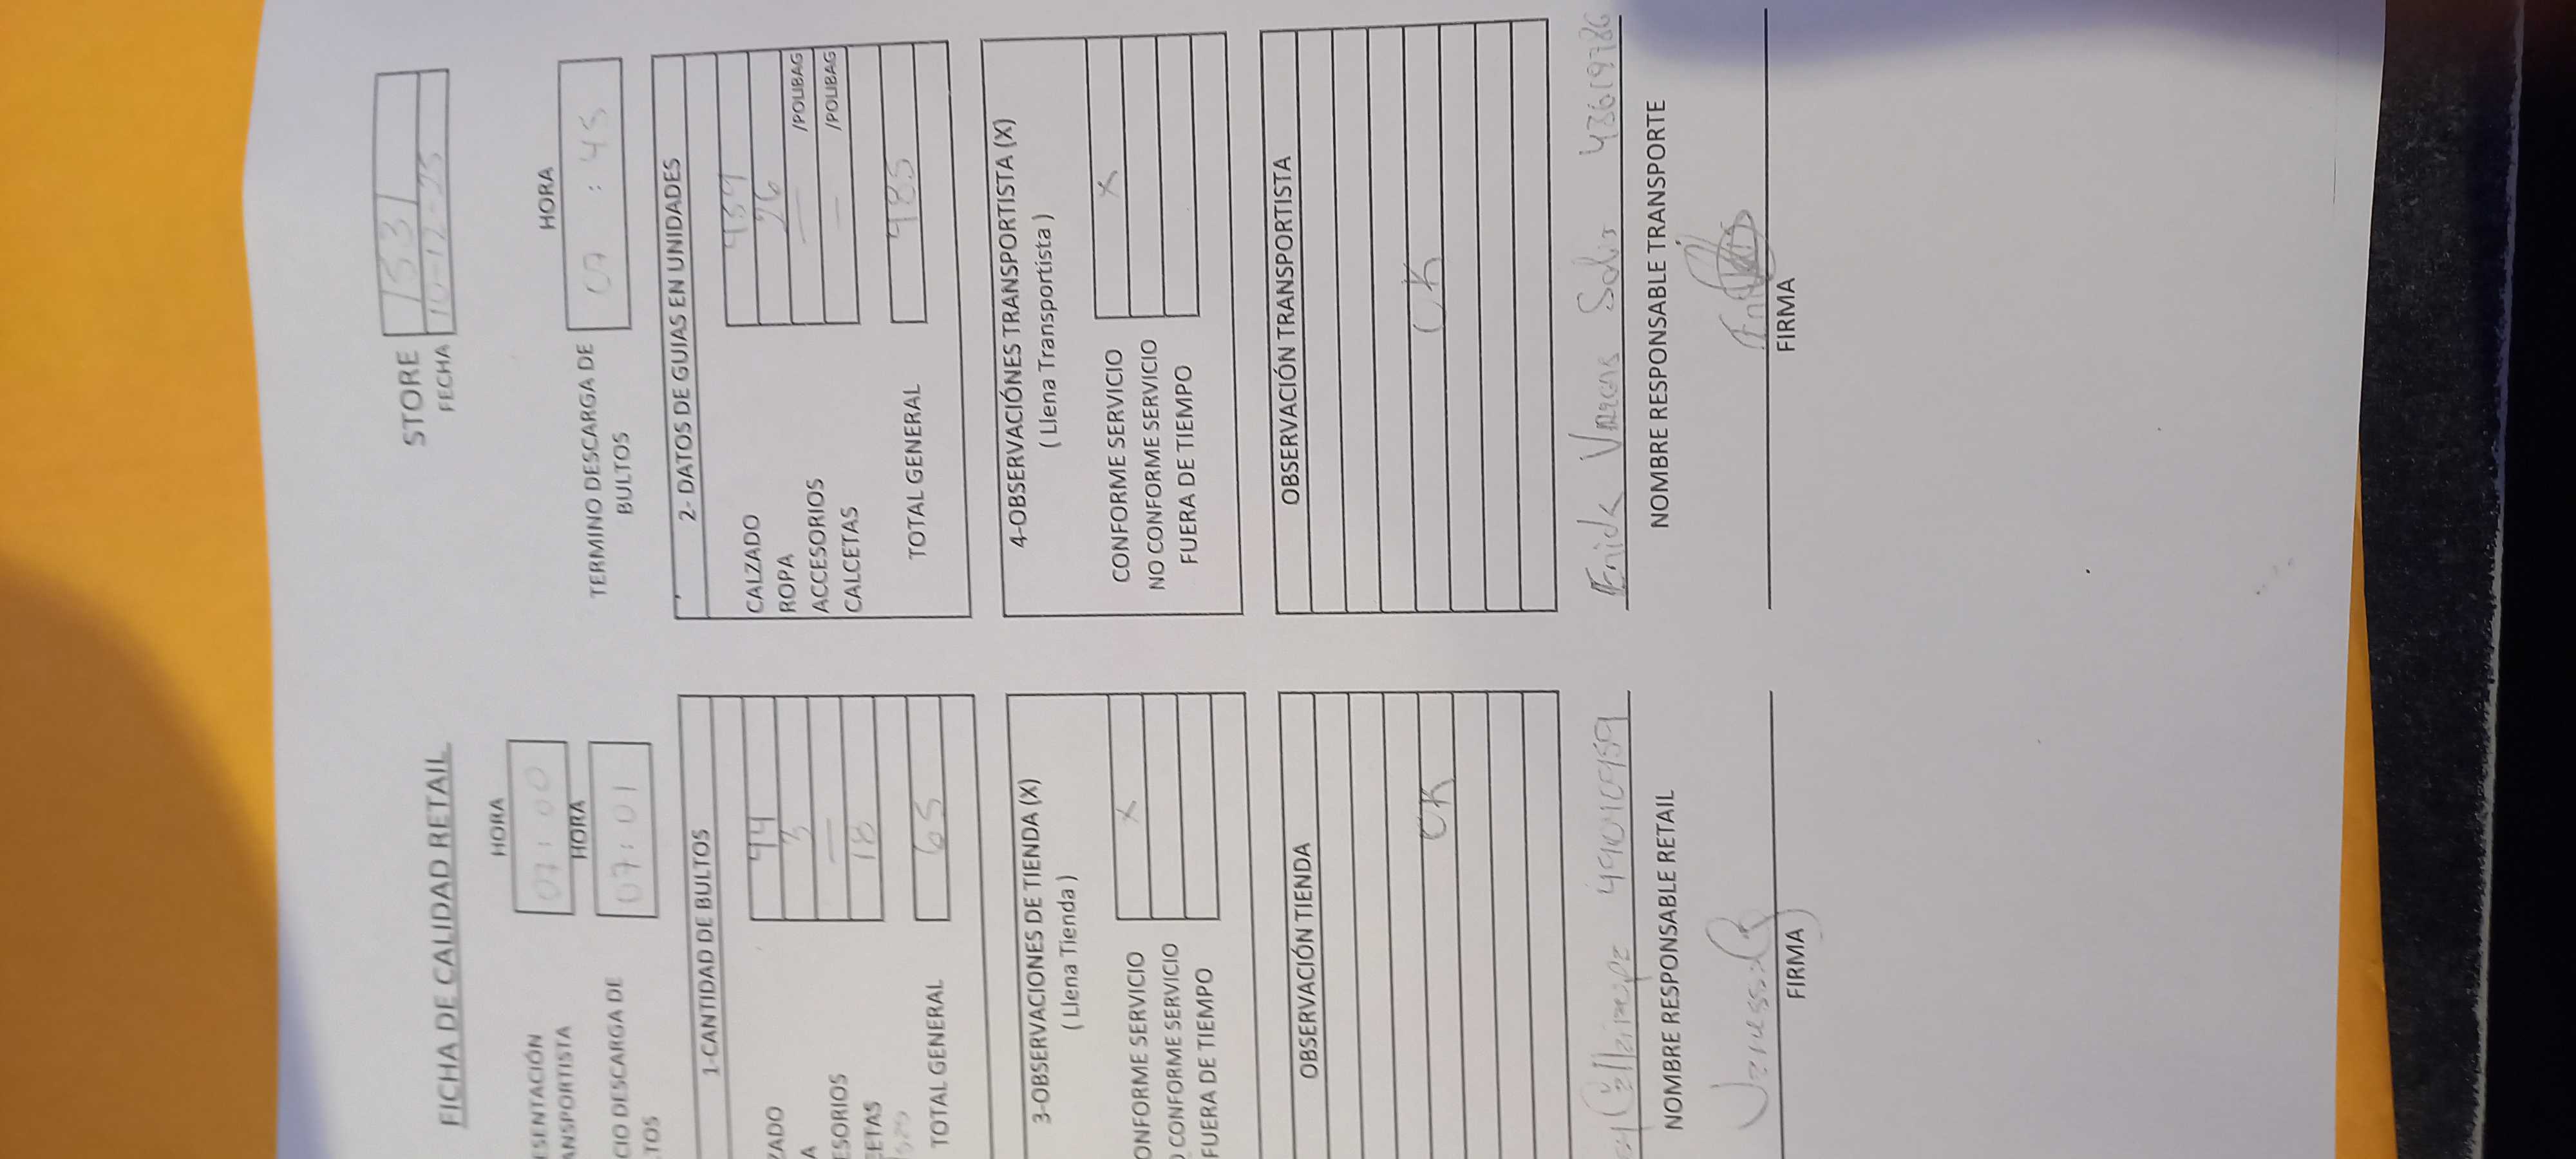 FICHA DE CALIDAD RETAIL
STORE 1531
FECHA 10-12-25
HORA
ESENTACIÓN
ANSPORTISTA 07:00
HORA
CIO DESCARGA DE
TOS 07:01
HORA
TERMINO DESCARGA DE
BULTOS 07:45
1-CANTIDAD DE BULTOS
ZADO 44
A 3
ESORIOS —
ETAS 18
TOTAL GENERAL 65
2- DATOS DE GUIAS EN UNIDADES
CALZADO 459
ROPA 26
ACCESORIOS — /POLIBAG
CALCETAS — /POLIBAG
TOTAL GENERAL 485
3-OBSERVACIONES DE TIENDA (X)
( Llena Tienda )
ONFORME SERVICIO X
O CONFORME SERVICIO
FUERA DE TIEMPO
4-OBSERVACIÓNES TRANSPORTISTA (X)
( Llena Transportista )
CONFORME SERVICIO X
NO CONFORME SERVICIO
FUERA DE TIEMPO
OBSERVACIÓN TIENDA
OK
OBSERVACIÓN TRANSPORTISTA
OK
NOMBRE RESPONSABLE RETAIL
Vargas Solis 43619786
NOMBRE RESPONSABLE TRANSPORTE
FIRMA
FIRMA